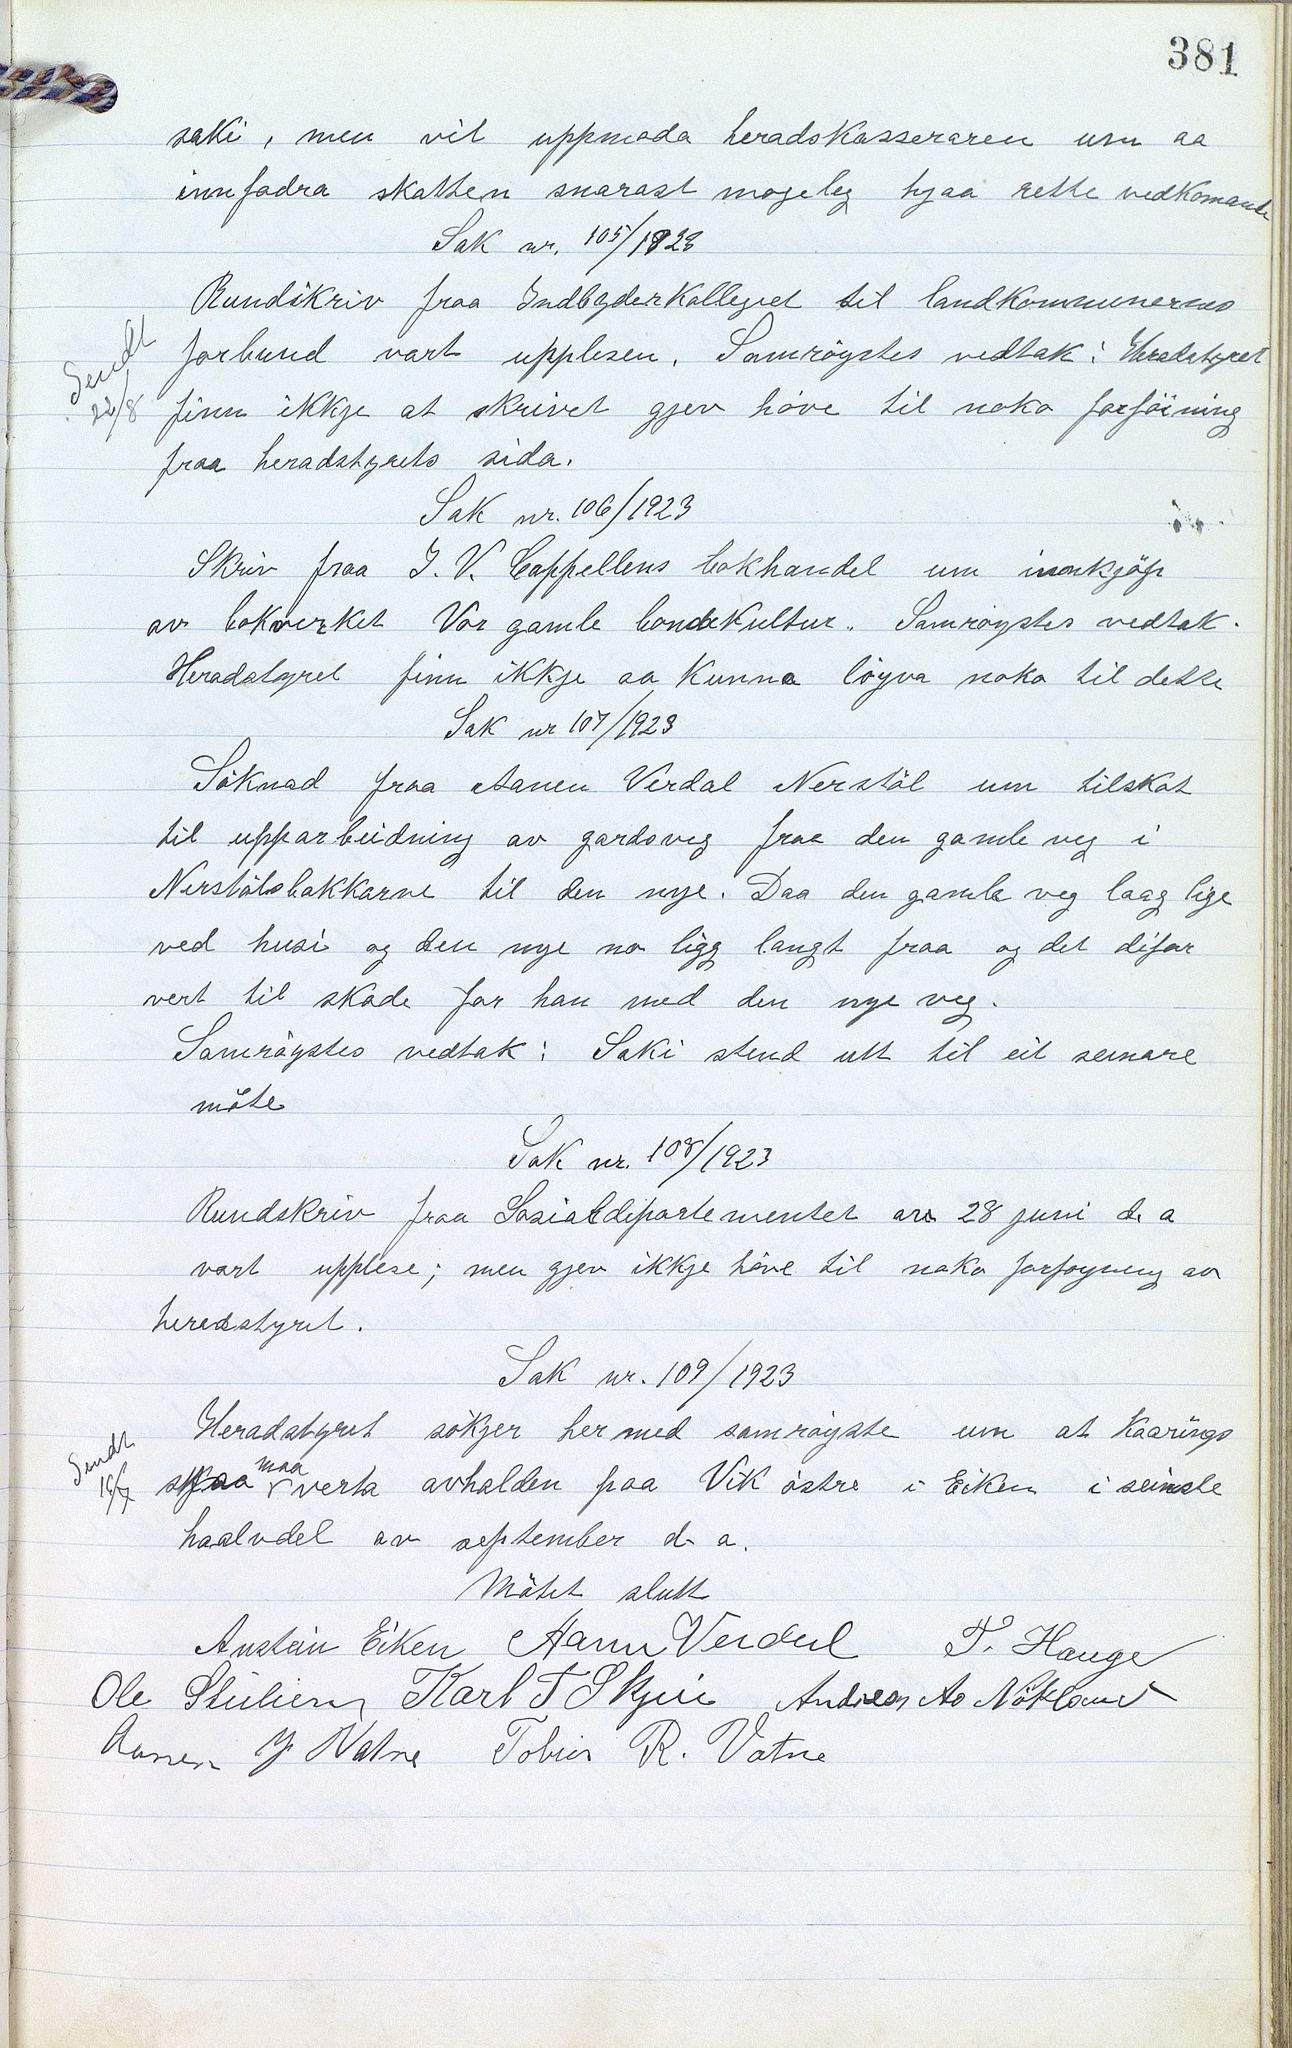 381
saki, men vil uppmoda heradskasseraren um aa
innfodra skatten snarast mogeleg hjaa rette vedkomande
Sak nr. 105/1923
Rundskriv fraa Indbyderkollegiet til landkommunernes
Sendt 22/8
forbund vart upplesen. Samröystes vedtak: Heradstyret
finn ikkje at skrivet gjev höve til noko forföining
fraa heradstyrets sida.
Sak nr. 106/1923
Skriv fraa J. V. Cappellens bokhandel um innkjöp
av bokverket Vor gamle bondekultur. Samröystes vedtak.
Heradstyret finn ikkje aa kunna löyva noko til dette
Sak nr 107/1923
Söknad fraa Aanen Verdal Nerstöl um tilskot
til upparbeidning av gardsveg fraa den gamle veg i
Nerstölsbakkarne til den nye. Daa den gamle veg laag lige
ved husi og den nye no ligg langt fraa og det difor
vert til skade for han med den nye veg.
Samröystes vedtak: Saki stend utt til eit seinare
möte
Sak nr. 108/1923
Rundskriv fraa Sosialdepartementet av 28 juni d. a
vart upplese; men gjev ikkje höve til noko forföyning av
heradstyret.
Sak nr. 109/1923
Heradstyret sökjer hermed samröyste um at kaarings
Sendt
maa
verta avhalden paa Vik östre i Eiken i seinste
haalvdel av september d. a.
Mötet slutt
Austein Eiken Aanen Verdal T. Hauge
Ole Karl T Skjeie Andreas Ao Nökland
Aanen J Vatne Tobias R. Vatne